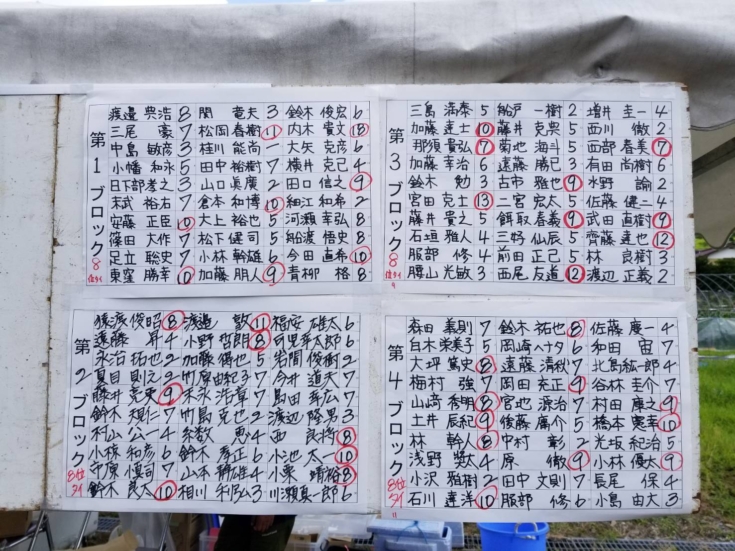 第1ブロック
8位タイ
渡邉 典浩 8 関 竜夫 3 鈴木 俊宏 6
三尾 豪 7 松岡 春樹 11 内木 貴文 13
中島 敏彦 3 桂川 能尚 一 大矢 克彦 6
小幡 和永 5 田中 裕樹 7 横井 克己 4
日下部 孝之 3 山口 眞廣 2 田口 信之 9
末武 裕右 7 倉本 和博 10 細江 和希 2
安藤 正臣 10 大上 裕也 5 河瀬 幸弘 8
篠田 大作 7 松下 健司 5 船渡 悟史 8
足立 聡史 7 小林 幹雄 6 今田 直希 10
東窪 勝幸 10 加藤 朋人 9 青柳 格 8
第3ブロック
8位タイ
三島 満泰 5 船戸 一樹 2 増井 圭一 4
加藤 達士 10 藤井 克典 5 西川 徹 2
那須 貴弘 7 菊地 海斗 5 西部 春美 7
加藤 幸治 6 遠藤 勝己 3 有田 尚樹 6
鈴木 勉 3 古市 雅也 9 水野 諭 2
宮田 克士 13 二宮 宏太 5 佐藤 健二 4
藤井 貴之 5 餌取 春義 9 武田 直樹 9
石垣 雅人 4 三好 仙辰 5 齊藤 達也 12
服部 修 4 前田 正己 5 林 良樹 3
腰山 光敏 3 西尾 友道 12 渡辺 正義 2
第2ブロック
8位タイ
猿渡 俊昭 8 渡邉 敦 11 福安 雄太 6
遠藤 昇 4 小野 哲朗 8 太郎 6
永治 拓也 2 加藤 5 岩間 俊樹 2
夏目 則之 2 竹原 由紀 3 7 今井 道夫 7
藤井 亮吏 9 末永 浩章 7 島田 幸広 7
鈴木 規仁 7 竹島 克也 2 渡辺 隆男 3
村山 公一 4 恵 4 西 良将 8
小椋 和彦 6 鈴木 孝正 6 小池 太一 10
守原 慎司 7 山本 静雄 4 小栗 靖裕 8
鈴木 良太 10 相川 利弘 3 川瀬 真一郎 6
第4ブロック
8位タイ
森田 義則 7 鈴木 祐也 8 佐藤 慶一 4
白木 栄美子 5 岡崎 ヘナタ 6 和田 宙 7
大坪 篤史 8 遠藤 清秋 7 北島 紘一郎 4
梅村 強 7 岡田 充正 9 谷林 圭介 7
山﨑 秀明 8 宮地 源治 7 村田 康之 9
土井 辰紀 9 後藤 廣介 5 橋本 憲幸 10
林 幹人 8 中村 彰 2 光坂 紀治 5
浅野 奨太 4 原 徹 9 小林 優太 9
小沢 雅樹 2 田中 文則 7 長尾 保 4
石川 達洋 10 服部 修 6 小島 由大 3